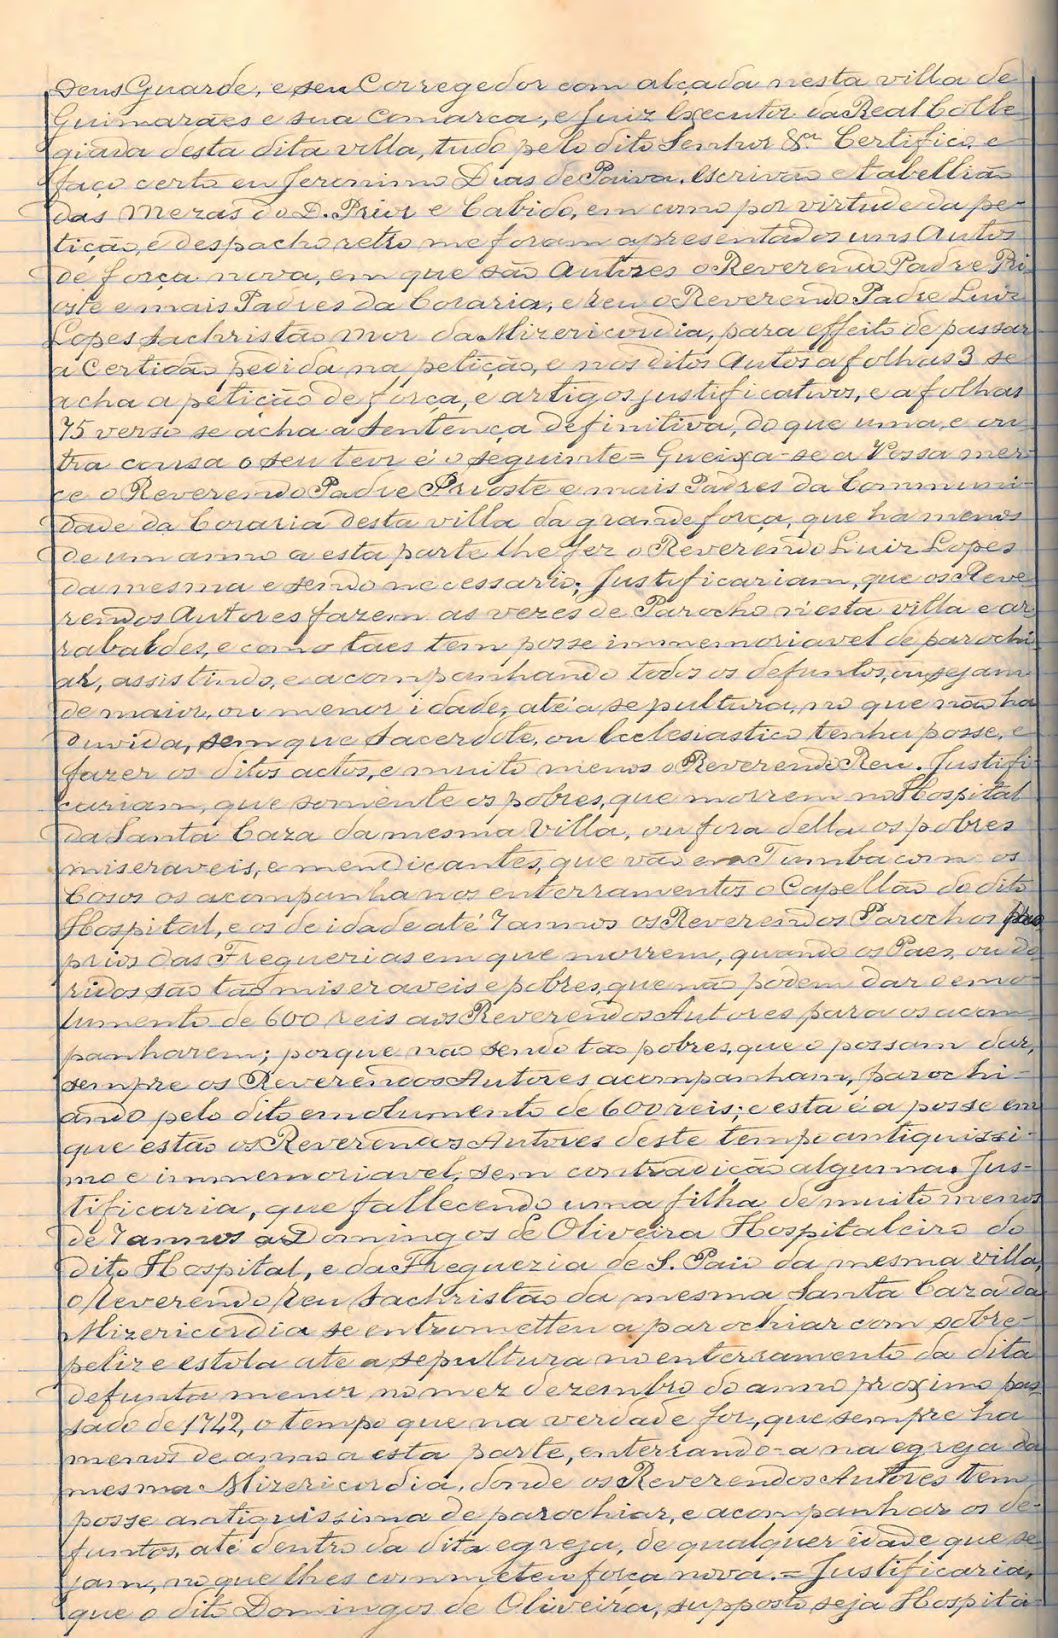 Deus Guarde, e seu Corregedor com alçada nesta villa de
Guimarães e sua Comarca, e Juiz Executor da Real Colle
giada desta dita villa, tudo pelo dito Senhor &ª Certifico, e
faço certo eu Jeronimo Dias de Paiva. Escrivão e tabellião
das Mezas do D. Prior e Cabido, em como por virtude da pe-
tição, e despacho retro me foram apresentados uns Autos
de força nova, em que são Autores o Reverendo Padre Pri
oste e mais Padres da Coraria, e reu o Reverendo Padre Luiz
Lopes Sachristão mor da Mizericordia, para effeito de passar
a Certidão pedida na petição, e nos ditos Autos a folhas 3 se
acha a petição de força, e artigos justificativos, e a folhas
75 verso se acha a Sentença definitiva, do que uma, e ou
tra cousa o seu teor é o seguinte = Queixa-se a Vossa mer-
ce o Reverendo Padre Prioste e mais Padres da Communi-
dade da Coraria desta villa da grande força, que ha menos
de um anno a esta parte lhe fez o Reverendo Luiz Lopes
da mesma e sendo necessario; Justificariam, que os Reve
rendos Autores fazem as vezes de Parocho n'esta villa e ar
rabaldes, e como taes tem posse immemoriavel de parochi
ar, assistindo, e acompanhando todos os defuntos, ou sejam
de maior, ou menor idade, até a sepultura, no que não ha
duvida, sem que Sacerdote, ou Ecclesiastico tenha posse, e
fazer os ditos actos, e muito menos o Reverendo Reu. Justifi-
cariam, que somente os pobres, que morrem no Hospital
da Santa Caza da mesma Villa, ou fora della os pobres
miseraveis, e mendicantes, que vão em Tumba com os
Cosos os acompanha nos enterramentos o Capellão do dito
Hospital, e os de idade até 7 annos os Reverendos Parochos pro
prios das Freguerias em que morrem, quando os Paes, ou do
ridos são tão miseraveis e pobres, que não podem dar o emo-
lumento de 600 reis aos Reverendos Autores para os acom
panharem; porque não sendo tão pobres, que o possam dar,
sempre os Reverendos Autores acompanham, parochi-
ando pelo dito emolumento de 600 reis; e esta é a posse em
que estão os Reverendos Autores deste tempo antiquissi-
mo e immemoriavel, sem contradição alguma. Jus-
tificaria, que fallecendo uma filha de muito menos
de 7 annos a Domingos de Oliveira Hospitaleiro do
dito Hospital, e da Freguezia de S. Paio da mesma villa,
o Reverendo Reu Sachristão da mesma Santa Caza da
Mizericordia se entrometteu a parochiar com sobre-
peliz e estola ate a sepultura no enterramento da dita
defunta menor no mez dezembro do anno proximo pas
sado de 1742, o tempo que na verdade for, que sempre ha
menos de anno a esta parte, enterrando-a na egreja da
mesma Mizericordia, donde os Reverendos Autores tem
posse antiquissima de parochiar, e acompanhar os de-
funtos, até dentro da dita egreja, de qualquer idade que se
jam, no que lhes commeteu força nova. = Justificaria,
que o dito Domingos de Oliveira, supposto seja Hospita-